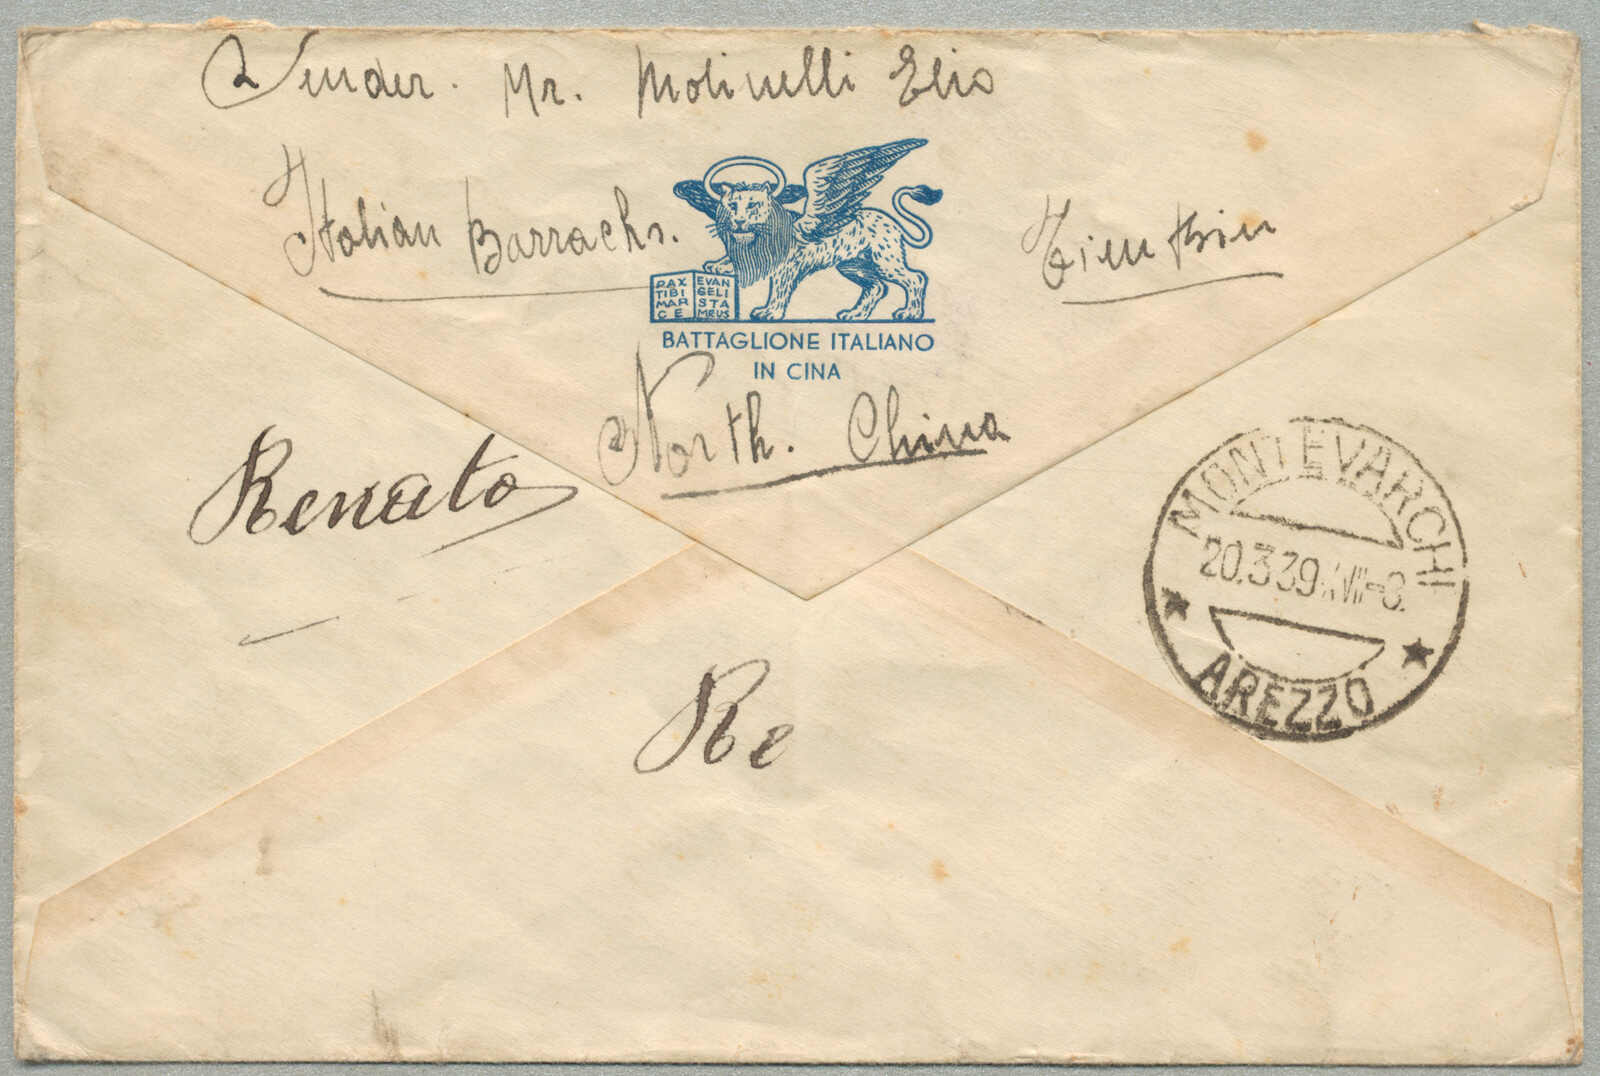 Sender. Mr. Molinelli Elio
Italian Barracks. Tientsin
PAX
TIBI
MAR
CE
EVAN
GELI
STA
MEUS
BATTAGLIONE ITALIANO
IN CINA
North. China
Renato
MONTEVARCHI
20.3.39.XVII-8.
AREZZO
Re